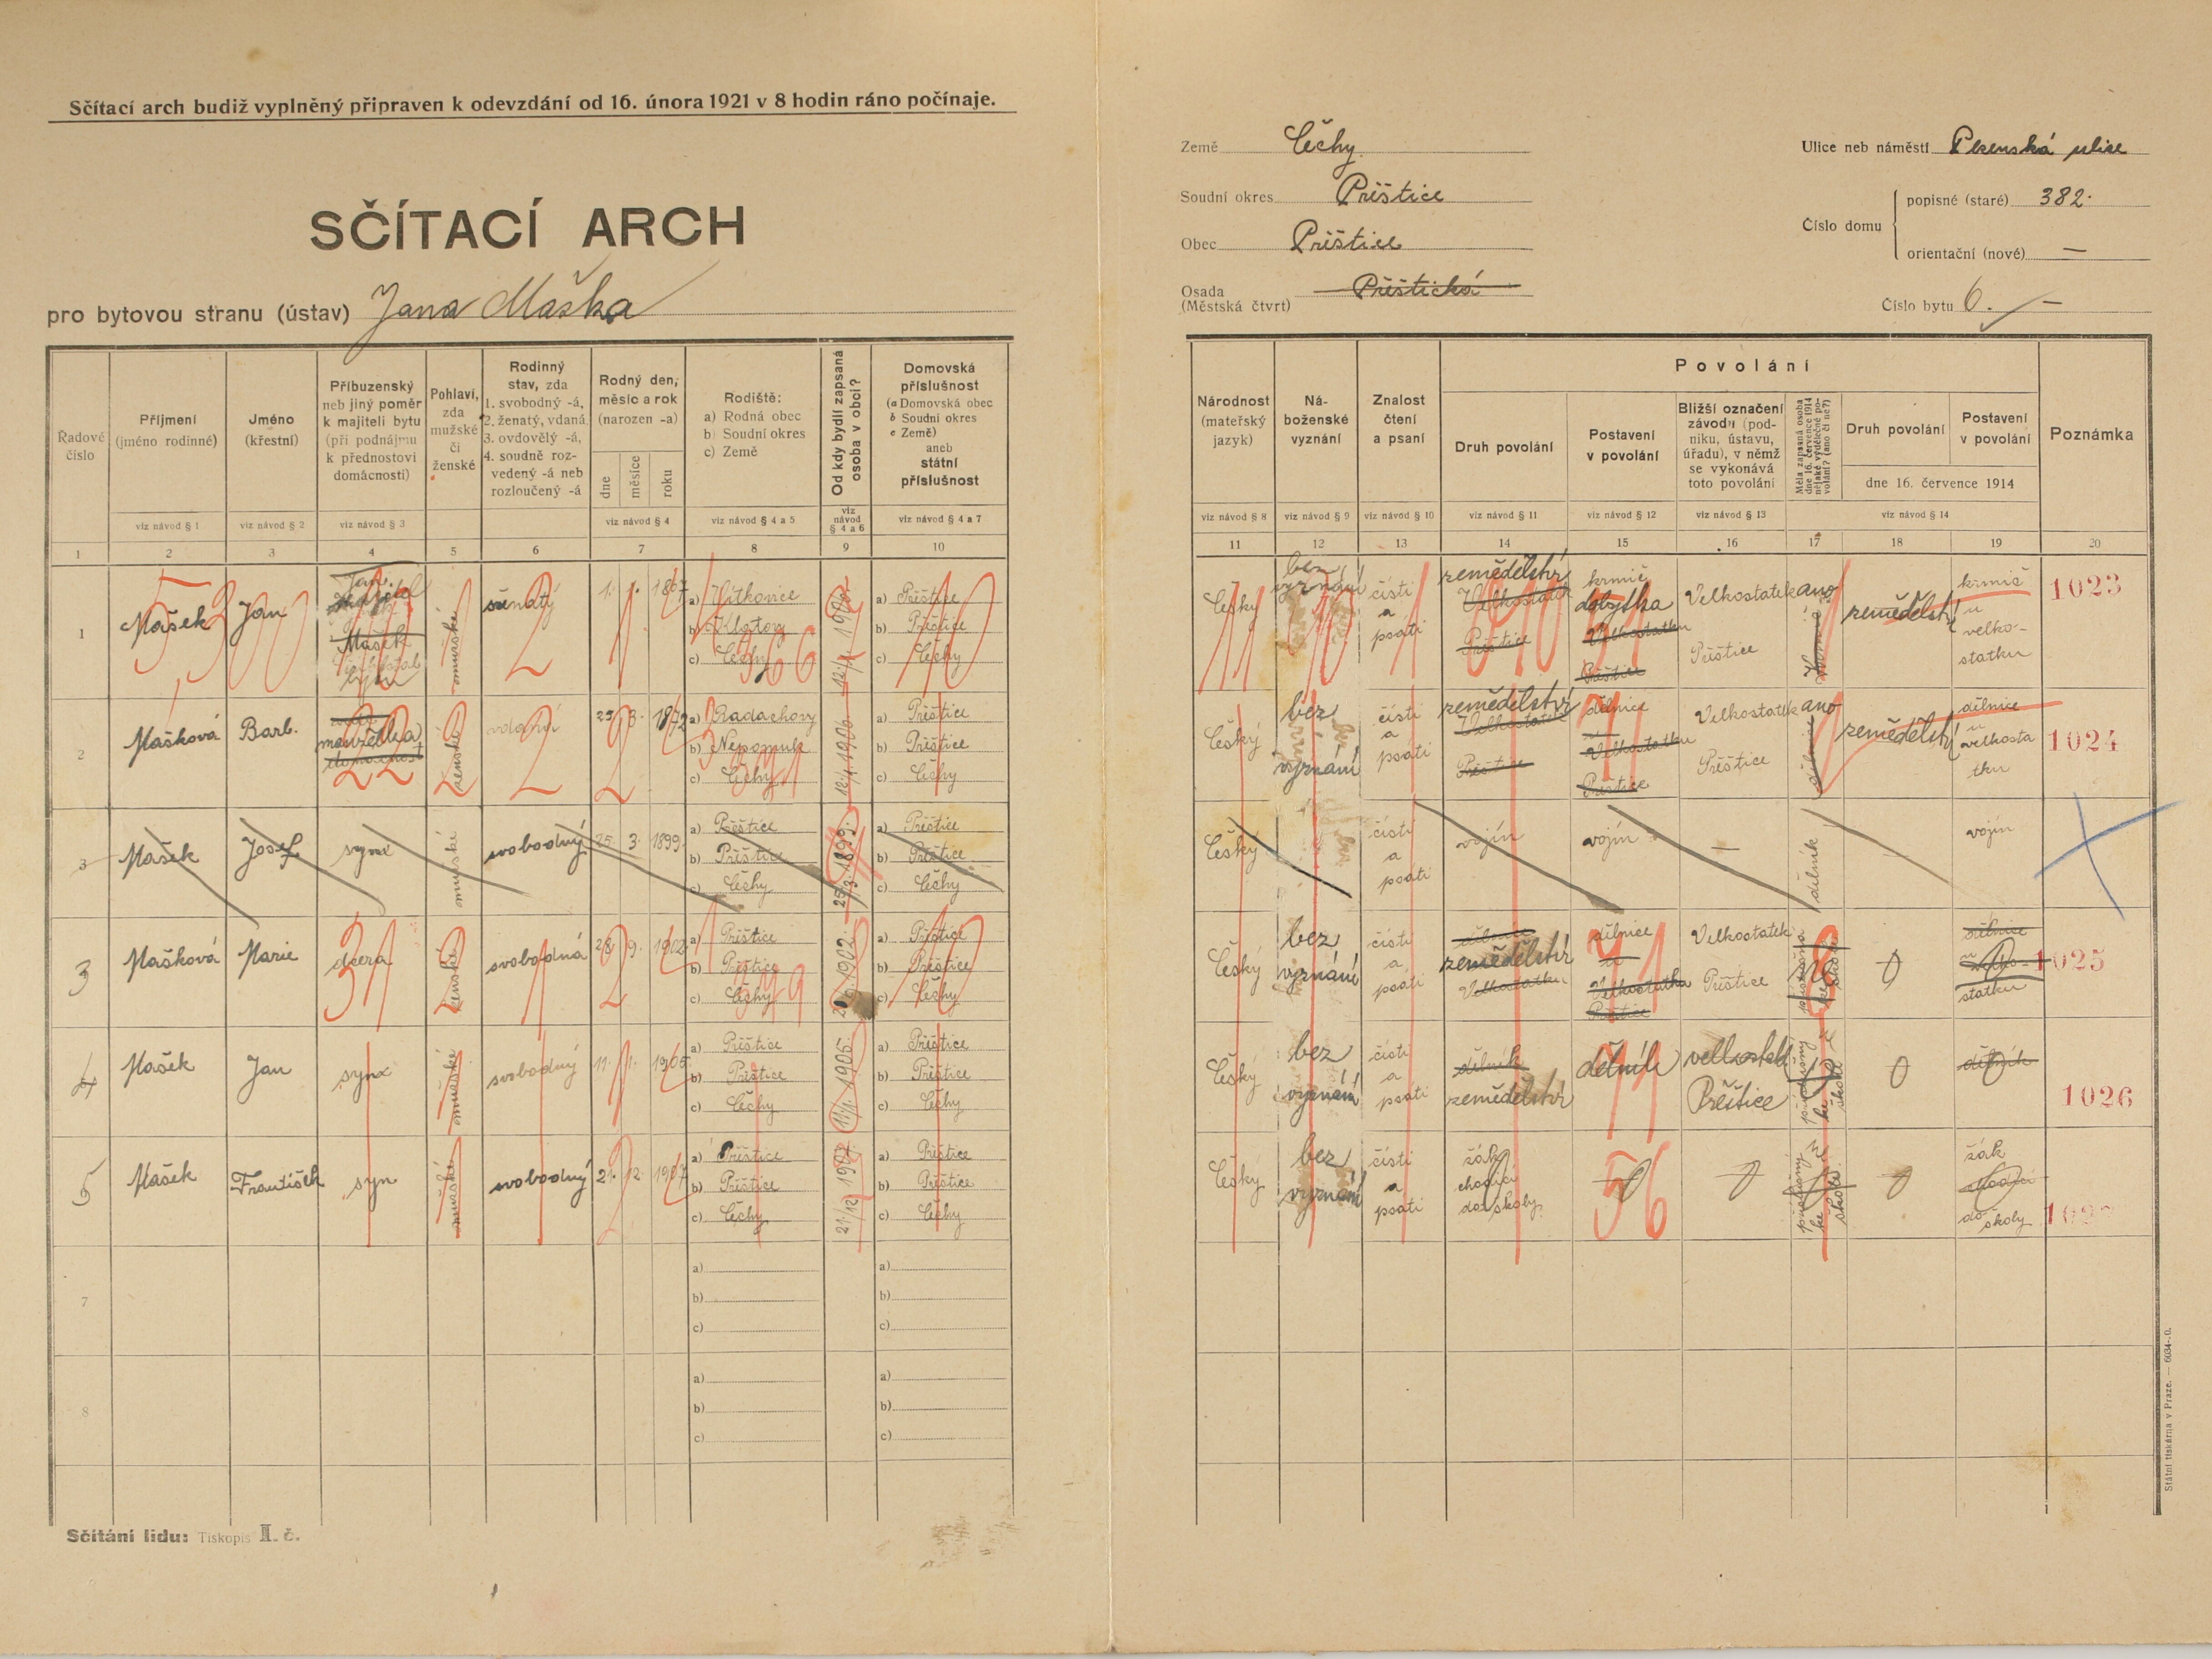 Sčítací arch budiž vyplněný připraven k odevzdání od 16. února 1921 v 8 hodin ráno počínaje.
SČÍTACÍ ARCH
pro bytovou stranu (ústav) Jana Maška
Země Čechy
Soudní okres Přeštice
Obec Přeštice
Osada Přeštická
(Městská čtvrt)
Ulice neb náměstí Plzenská ulice
Číslo domu
popisné (staré) 382.
orientační (nové) —
Číslo bytu 6. —
Řadové číslo
Příjmení (jméno rodinné)
Jméno (křestní)
Příbuzenský neb jiný poměr k majiteli bytu (při podnájmu k přednostovi domácnosti)
Pohlaví, zda mužské či ženské
Rodinný stav, zda 1. svobodný -á, 2. ženatý, vdaná, 3. ovdovělý -á, 4. soudně rozvedený -á neb rozloučený -á
Rodný den, měsíc a rok (narozen -a)
dne měsíce roku
Rodiště: a) Rodná obec b) Soudní okres c) Země
Od kdy bydlí zapsaná osoba v obci?
Domovská příslušnost (a Domovská obec b Soudní okres c Země) aneb státní příslušnost
viz návod § 1 viz návod § 2 viz návod § 3 viz návod § 4 viz návod § 4 a 5 viz návod § 4 a 6 viz návod § 4 a 7
1 2 3 4 5 6 7 8 9 10
Národnost (mateřský jazyk)
Náboženské vyznání
Znalost čtení a psaní
Povolání
Druh povolání
Postavení v povolání
Bližší označení závodu (podniku, ústavu, úřadu), v němž se vykonává toto povolání
Měla zapsaná osoba dne 16. července 1914 nějaké výdělečné povolání? (ano či ne?)
Druh povolání
Postavení v povolání
dne 16. července 1914
Poznámka
viz návod § 8 viz návod § 9 viz návod § 10 viz návod § 11 viz návod § 12 viz návod § 13 viz návod § 14
11 12 13 14 15 16 17 18 19 20
1 Mašek Jan mužské ženatý 1. 1. 1867
a) Vítkovice
b) Klatovy
c) Čechy
a) Přeštice
b) Přeštice
c) Čechy
Český bez vyznání čísti a psáti zemědělství Velkostatek Přeštice krmič dobytka Velkostatku Přeštice Velkostatek Přeštice ano zemědělství krmič u velkostatku 1023
2 Mašková Barb. manželka ženské vdaná 23. 3. 1872
a) Radachovy
b) Nepomuk
c) Čechy
a) Přeštice
b) Přeštice
c) Čechy
Český bez vyznání čísti a psáti zemědělství Velkostatek Přeštice dělnice u Velkostatku Přeštice Velkostatek Přeštice ano zemědělství dělnice u velkostatku 1024
3 Mašek Josef syn mužské svobodný 25. 3. 1899
a) Přeštice
b) Přeštice
c) Čechy
25/3. 1899.
a) Přeštice
b) Přeštice
c) Čechy
Český čísti a psáti vojín vojín — dělník — vojín
3 Mašková Marie dcera ženské svobodná 28. 9. 1902.
a) Přeštice
b) Přeštice
c) Čechy
a) Přeštice
b) Přeštice
c) Čechy
Český bez vyznání čísti a psáti dělnice zemědělství Velkostatku dělnice u Velkostatku Přeštice Velkostatek Přeštice 0 dělnice statku 1025
4 Mašek Jan syn mužské svobodný 11. 1. 1905.
a) Přeštice
b) Přeštice
c) Čechy
11/1. 1905.
a) Přeštice
b) Přeštice
c) Čechy
Český bez vyznání čísti a psáti dělník zemědělství dělník velkostatek Přeštice 0 dělník 1026
5 Mašek František syn mužské svobodný 21. 12. 1907
a) Přeštice
b) Přeštice
c) Čechy
21/12 1907
a) Přeštice
b) Přeštice
c) Čechy
Český bez vyznání čísti a psáti žák chodící do školy 56 0 0 žák chodící do školy
7
a)
b)
c)
a)
b)
c)
8
a)
b)
c)
a)
b)
c)
Sčítání lidu: Tiskopis I. č.
Státní tiskárna v Praze. — 6034-0.